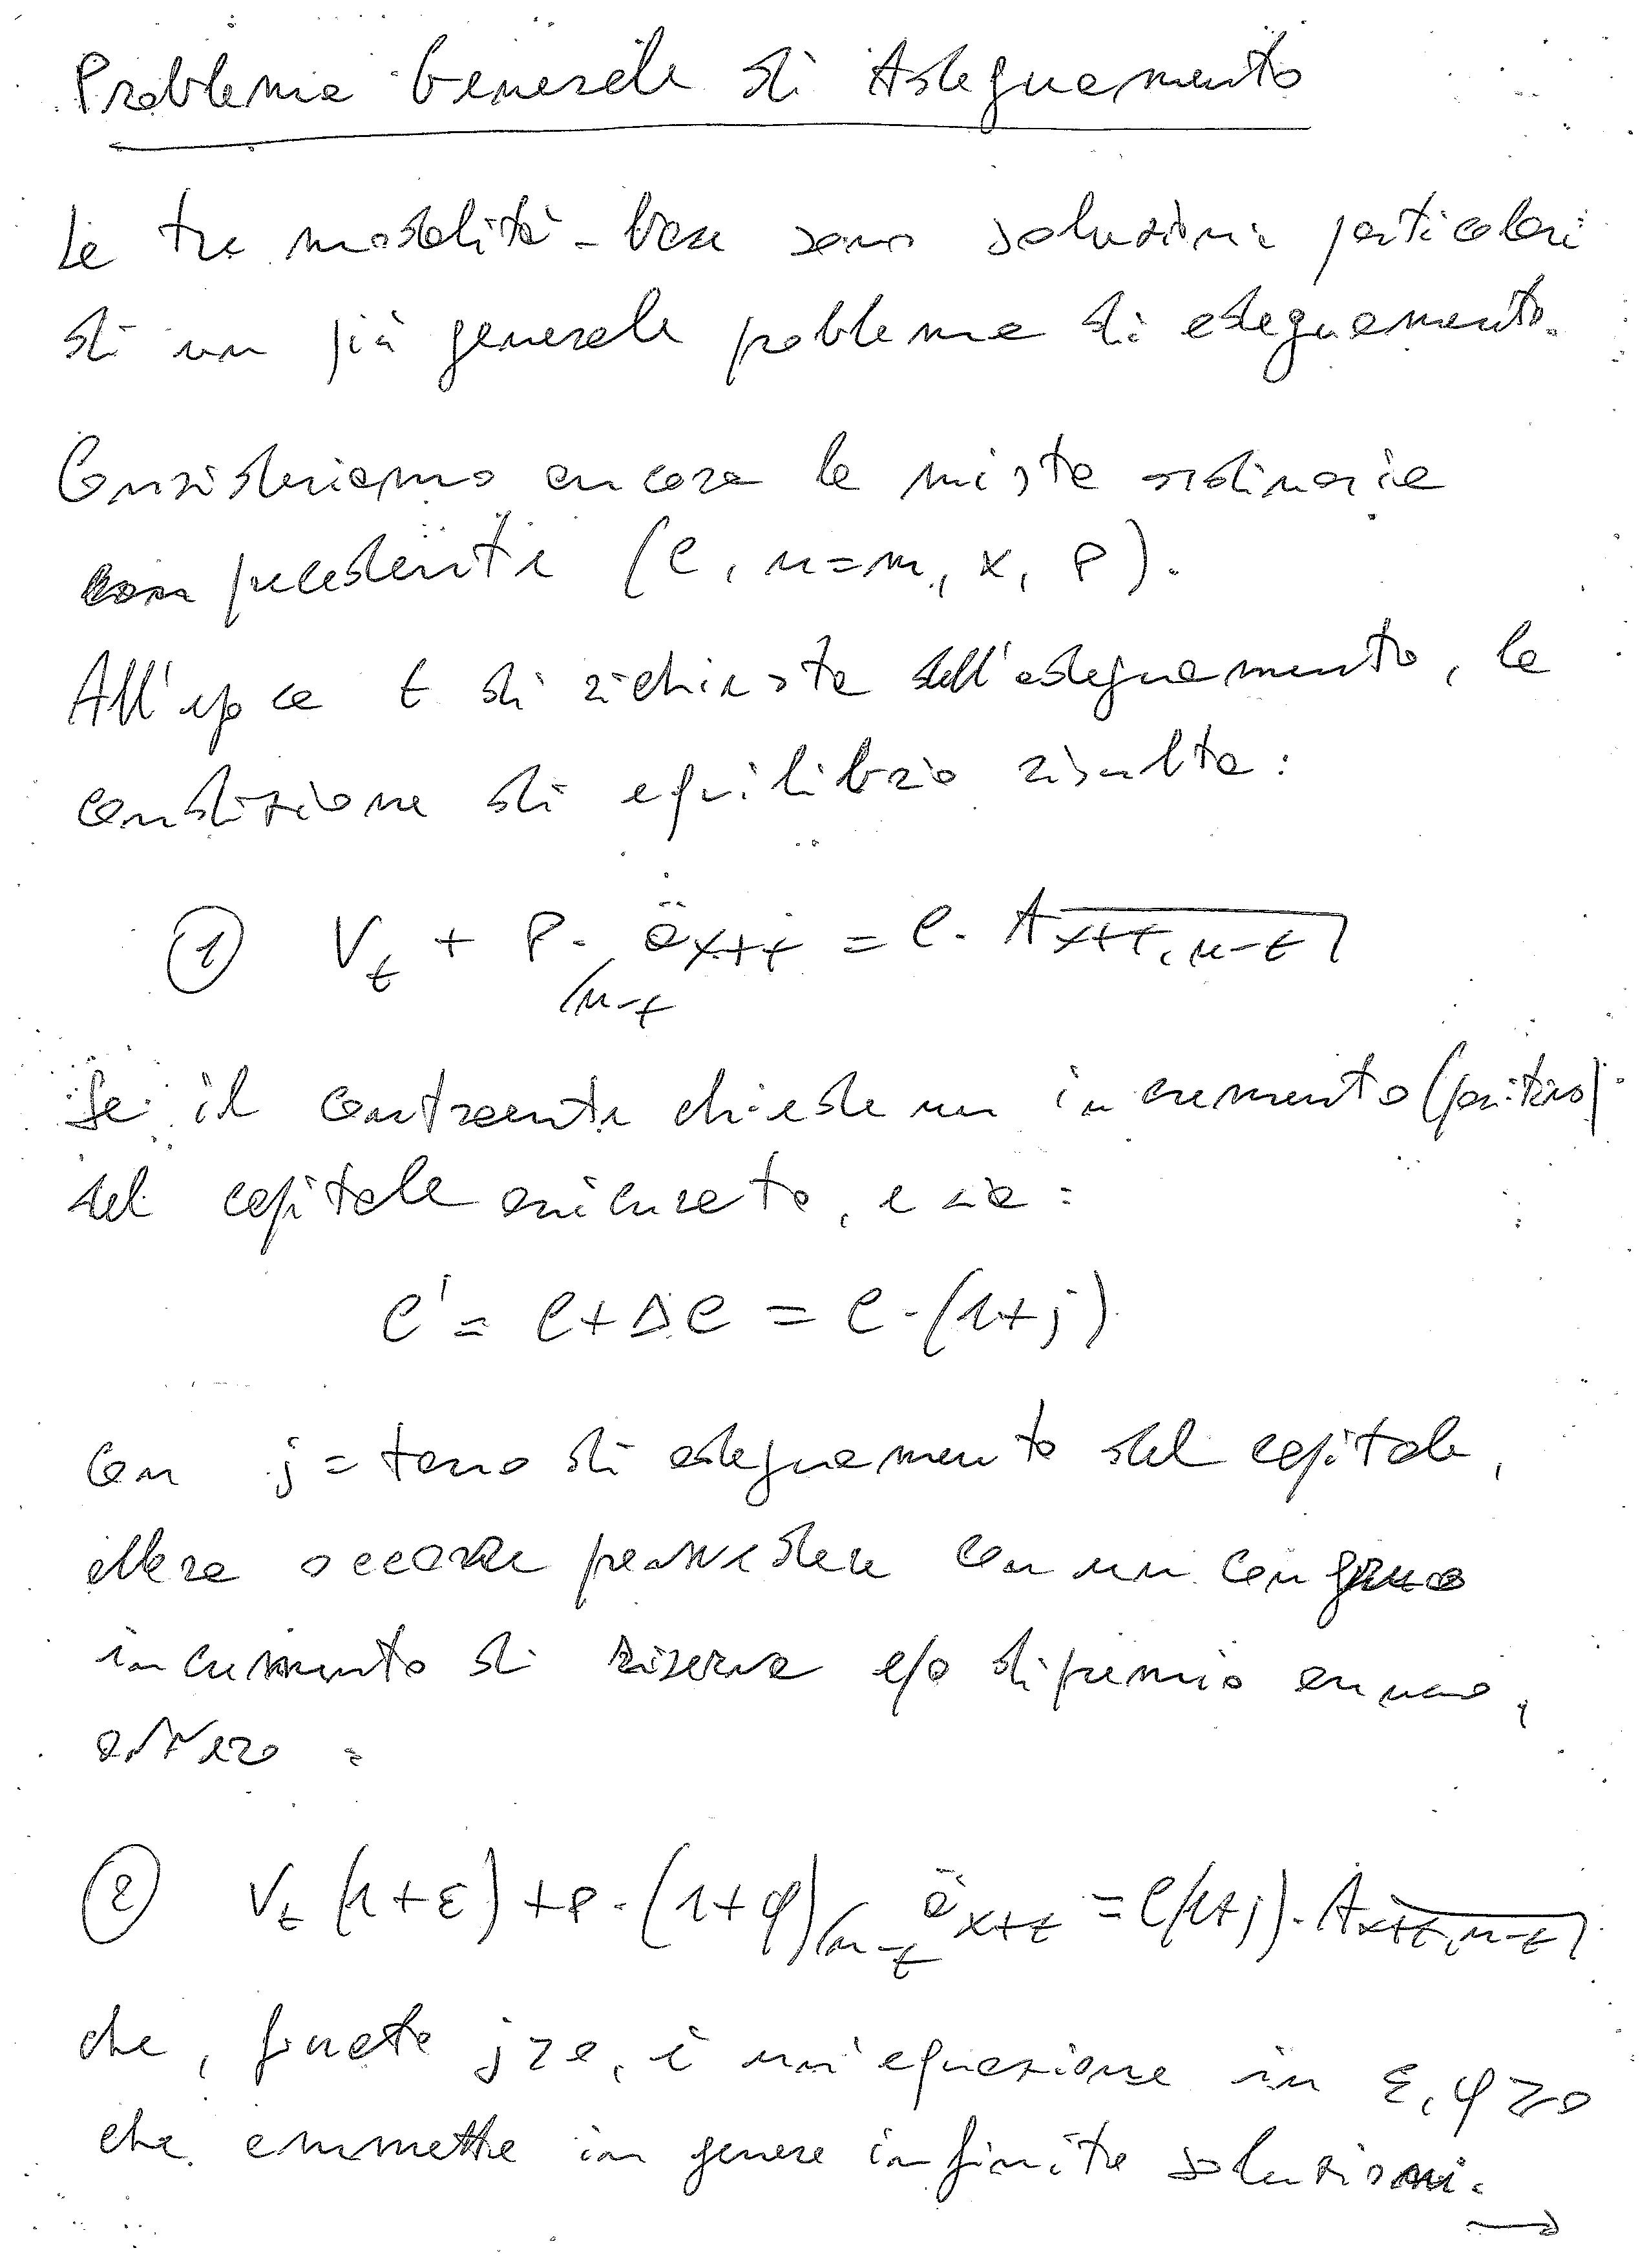 Problema Generale di Adeguamento
Le tre modalità-base sono soluzioni particolari
di un più generale problema di adeguamento.
Consideriamo ancora la mista ordinaria
precedente (C, n=m, x, P).
All'epoca t di richiesta dell'adeguamento, la
condizione di equilibrio risulta:
① V_t + P · /n-t ä_x+t = C · A_x+t,n-t⌉
Se il contraente chiede un incremento (positivo)
del capitale assicurato, e sia:
C' = C+ΔC = C·(1+j)
con j = tasso di adeguamento del capitale,
allora occorre provvedere con un congruo
incremento di riserva e/o di premio annuo,
ovvero:
② V_t (1+ε) + P·(1+φ) /n-t ä_x+t = C(1+j)·A_x+t,n-t⌉
che, fissato j≥0, è un'equazione in ε, φ ≥0
che ammette in genere infinite soluzioni.
→